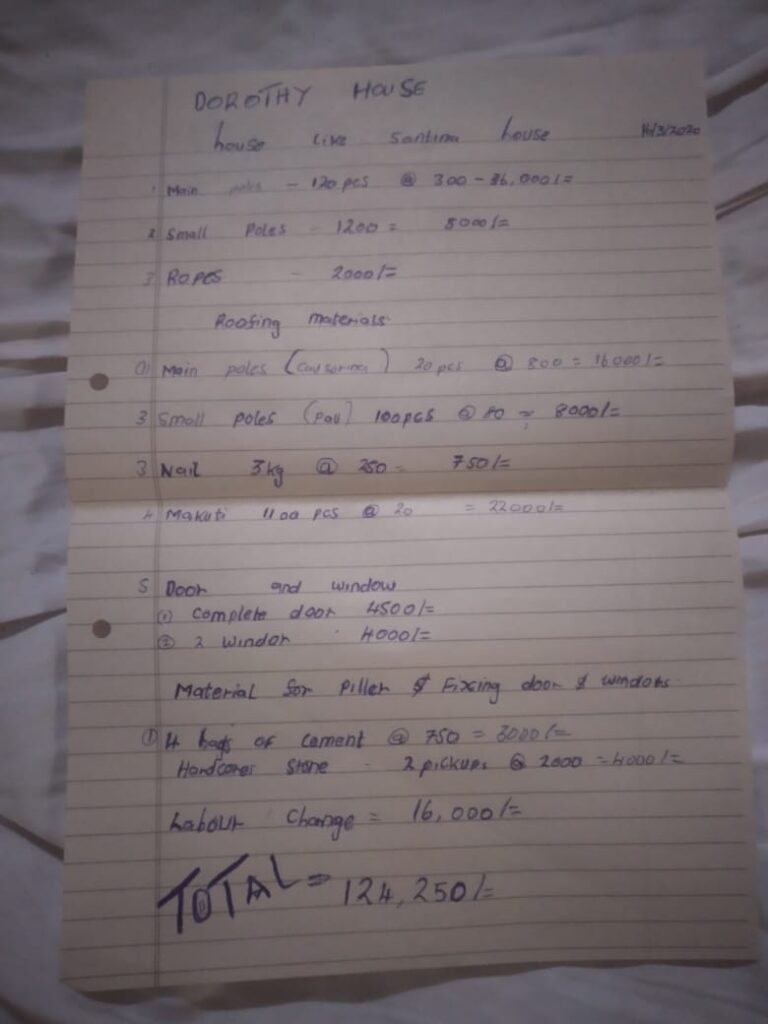 DOROTHY HOUSE
house like santina house
1 Main poles - 120 pcs @ 300 - 36,000/=
2 Small Poles - 1200 = 8000/=
3 Ropes - 2000/=
Roofing materials
① Main poles (       ) 20 pcs @ 800 = 16000/=
3 Small poles (      ) 100pcs @ 80 = 8000/=
3 Nail 3kg @ 250 = 750/=
4 Makuti 1100 pcs @ 20 = 22000/=
5 Door and window
① Complete door 4500/=
② 2 Windor 4000/=
Material for Piller & Fixing door & windors
① 4 bags of cement @ 750 = 3000/=
Hardcores Stone - 2 pickups @ 2000 = 4000/=
Labour Change = 16,000/=
TOTAL = 124,250/=